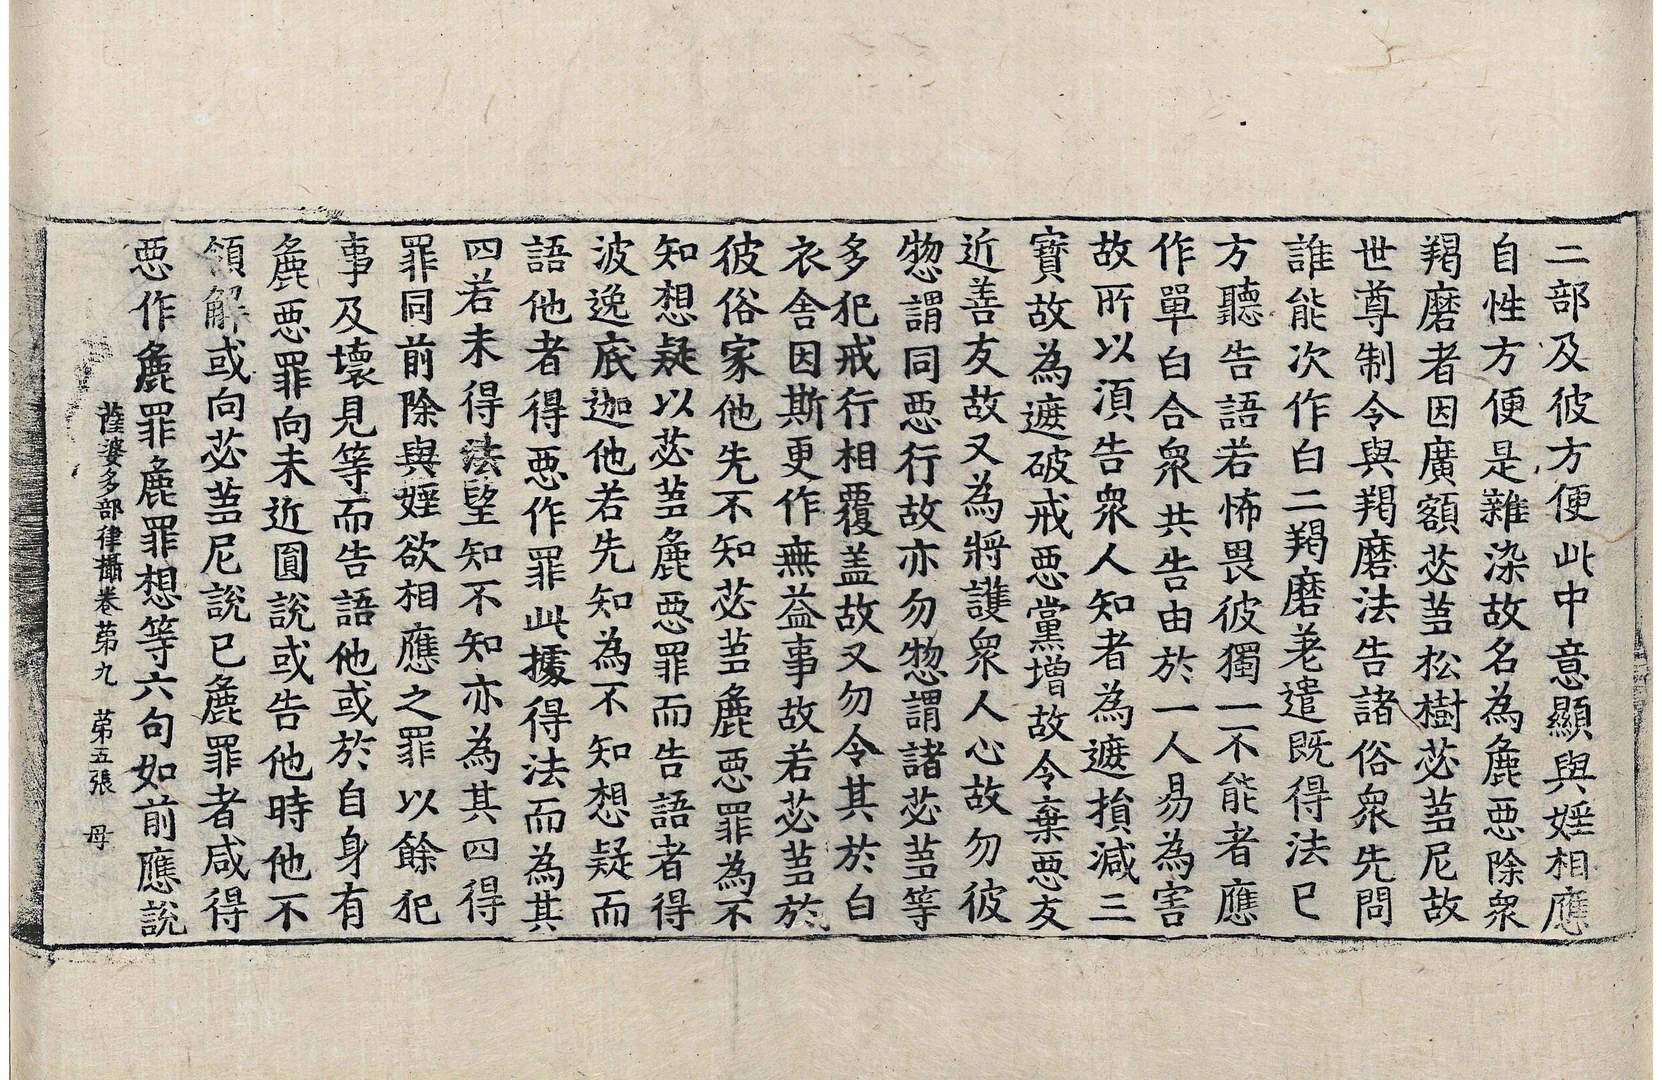 二部及彼方便此中意顯與婬相應
自性方便是雜染故名為麁惡除衆
羯磨者因廣額苾蒭松樹苾蒭尼故
世尊制令與羯磨法告諸俗衆先問
誰能次作白二羯磨差遣既得法已
方聽告語若怖畏彼獨一不能者應
作單白合衆共告由於一人易為害
故所以須告衆人知者為遮損減三
寶故為遮破戒惡黨增故令棄惡友
近善友故又為將護衆人心故勿彼
惣謂同惡行故亦勿惣謂諸苾蒭等
多犯戒行相覆盖故又勿令其於白
衣舍因斯更作無益事故若苾蒭於
彼俗家他先不知苾蒭麁惡罪為不
知想疑以苾蒭麁惡罪而告語者得
波逸底迦他若先知為不知想疑而
語他者得惡作罪此據得法而為其
四若未得法望知不知亦為其四得
罪同前除與婬欲相應之罪以餘犯
事及壞見等而告語他或於自身有
麁惡罪向未近圓說或告他時他不
領解或向苾蒭尼說已麁罪者咸得
惡作麁罪麁罪想等六句如前應說
薩婆多部律攝卷苐九 苐五張 母